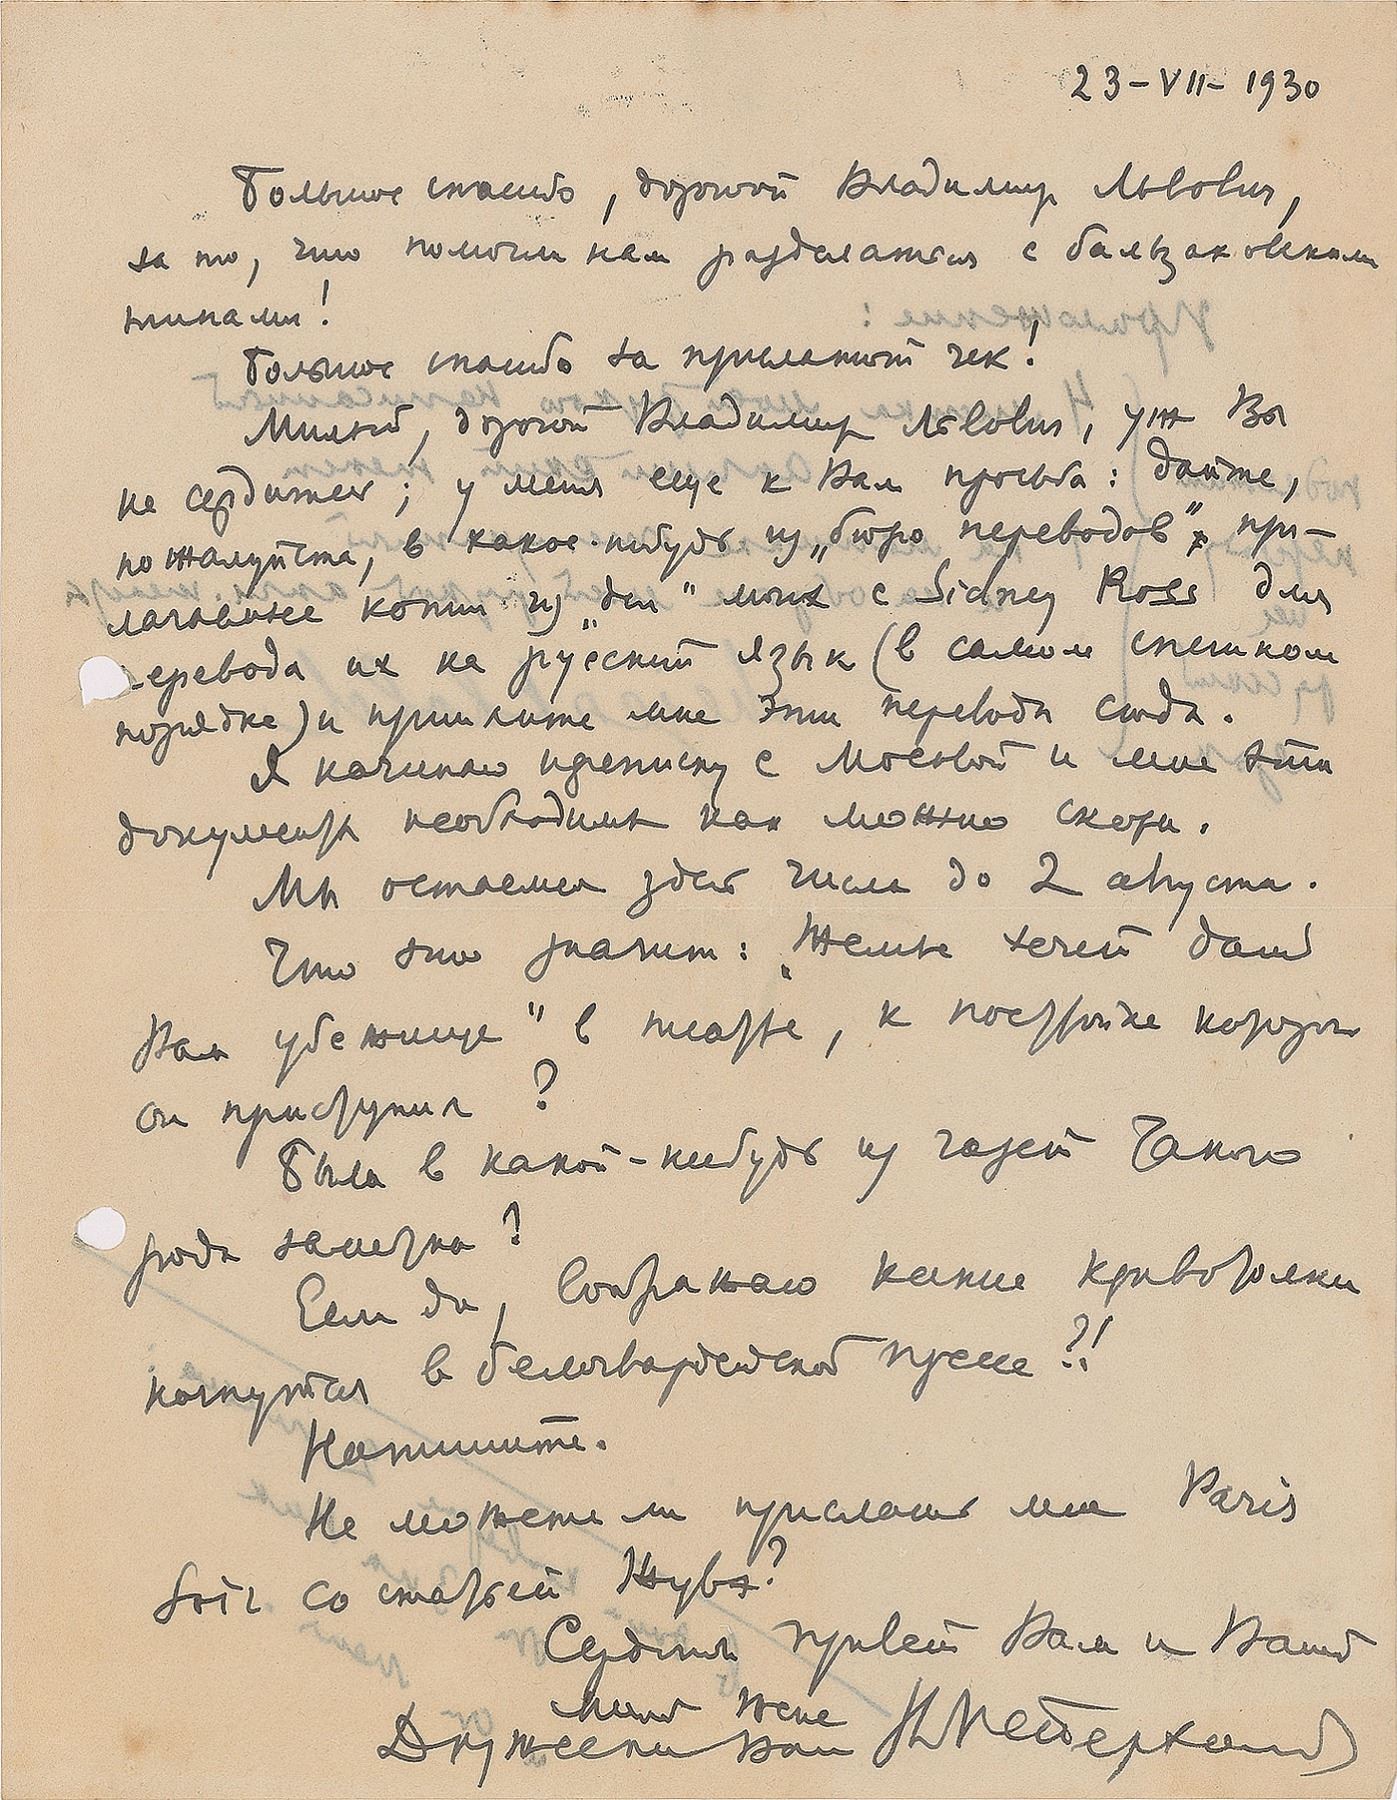 23-VII-1930
Большое спасибо, дорогой Владимир Львович,
за то, что помогли нам разделаться с бальзаковскими
типами!
Большое спасибо за присланный чек!
Милый, дорогой Владимир Львович, уж Вы
не сердитесь; у меня еще к Вам просьба: дайте,
пожалуйста, в какое-нибудь из „бюро переводов", при-
лагаемые копии из „дел" моих с Sidney Ross для
перевода их на русский язык (в самом спешном
порядке) и пришлите мне эти переводы сюда.
Я начинаю переписку с Москвой и мне эти
документы необходимы как можно скорее.
Мы остаемся здесь числа до 2 августа.
Что это значит: „Жемье хочет дать
Вам убежище" в театре, к постройке которого
он приступил?
Была в какой-нибудь из газет такого
рода заметка?
Если да, воображаю какие кривотолки
начнутся в белогвардейской прессе?!
Напишите.
Не можете ли прислать мне Paris
Soir со статьей Жувэ?
Сердечный привет Вам и Вашей
милой жене
Дружески Ваш В Мейерхольд
Приложение: